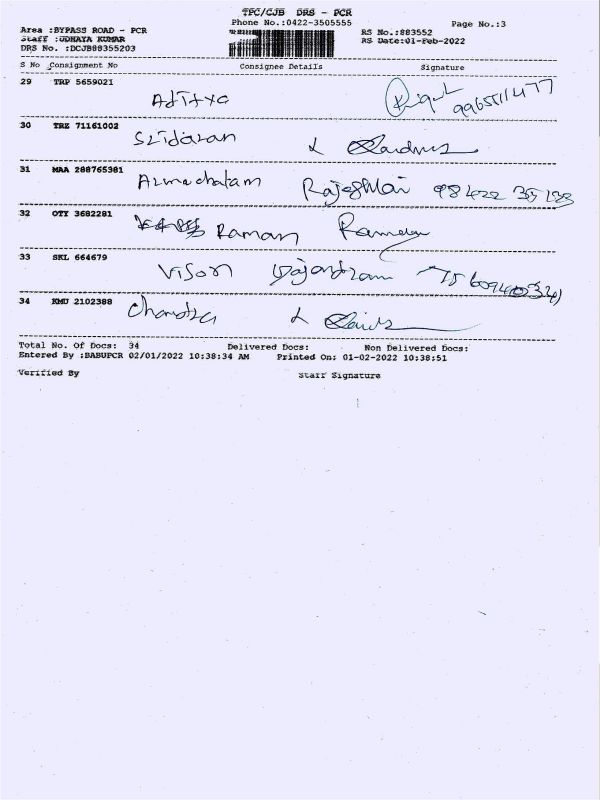 TPC/CJB DRS - PCR
Phone No.:0422-3505555
Page No.:3
Area :BYPASS ROAD - PCR
Staff :UDHAYA KUMAR
DRS No. :DCJB88355203
RS No.:883552
RS Date:01-Feb-2022
S No Consignment No Consignee Details Signature
29 TRP 5659021 Aditya 9965511477
30 TRZ 71161002 Sridaran
31 MAA 288765381 Arunachalam Rajeshwari
32 OTY 3682281 Raman
33 SKL 664679
34 KMU 2102388 Chandra
Total No. Of Docs: 34 Delivered Docs: Non Delivered Docs:
Entered By :BABUPCR 02/01/2022 10:38:34 AM Printed On: 01-02-2022 10:38:51
Verified By Staff Signature